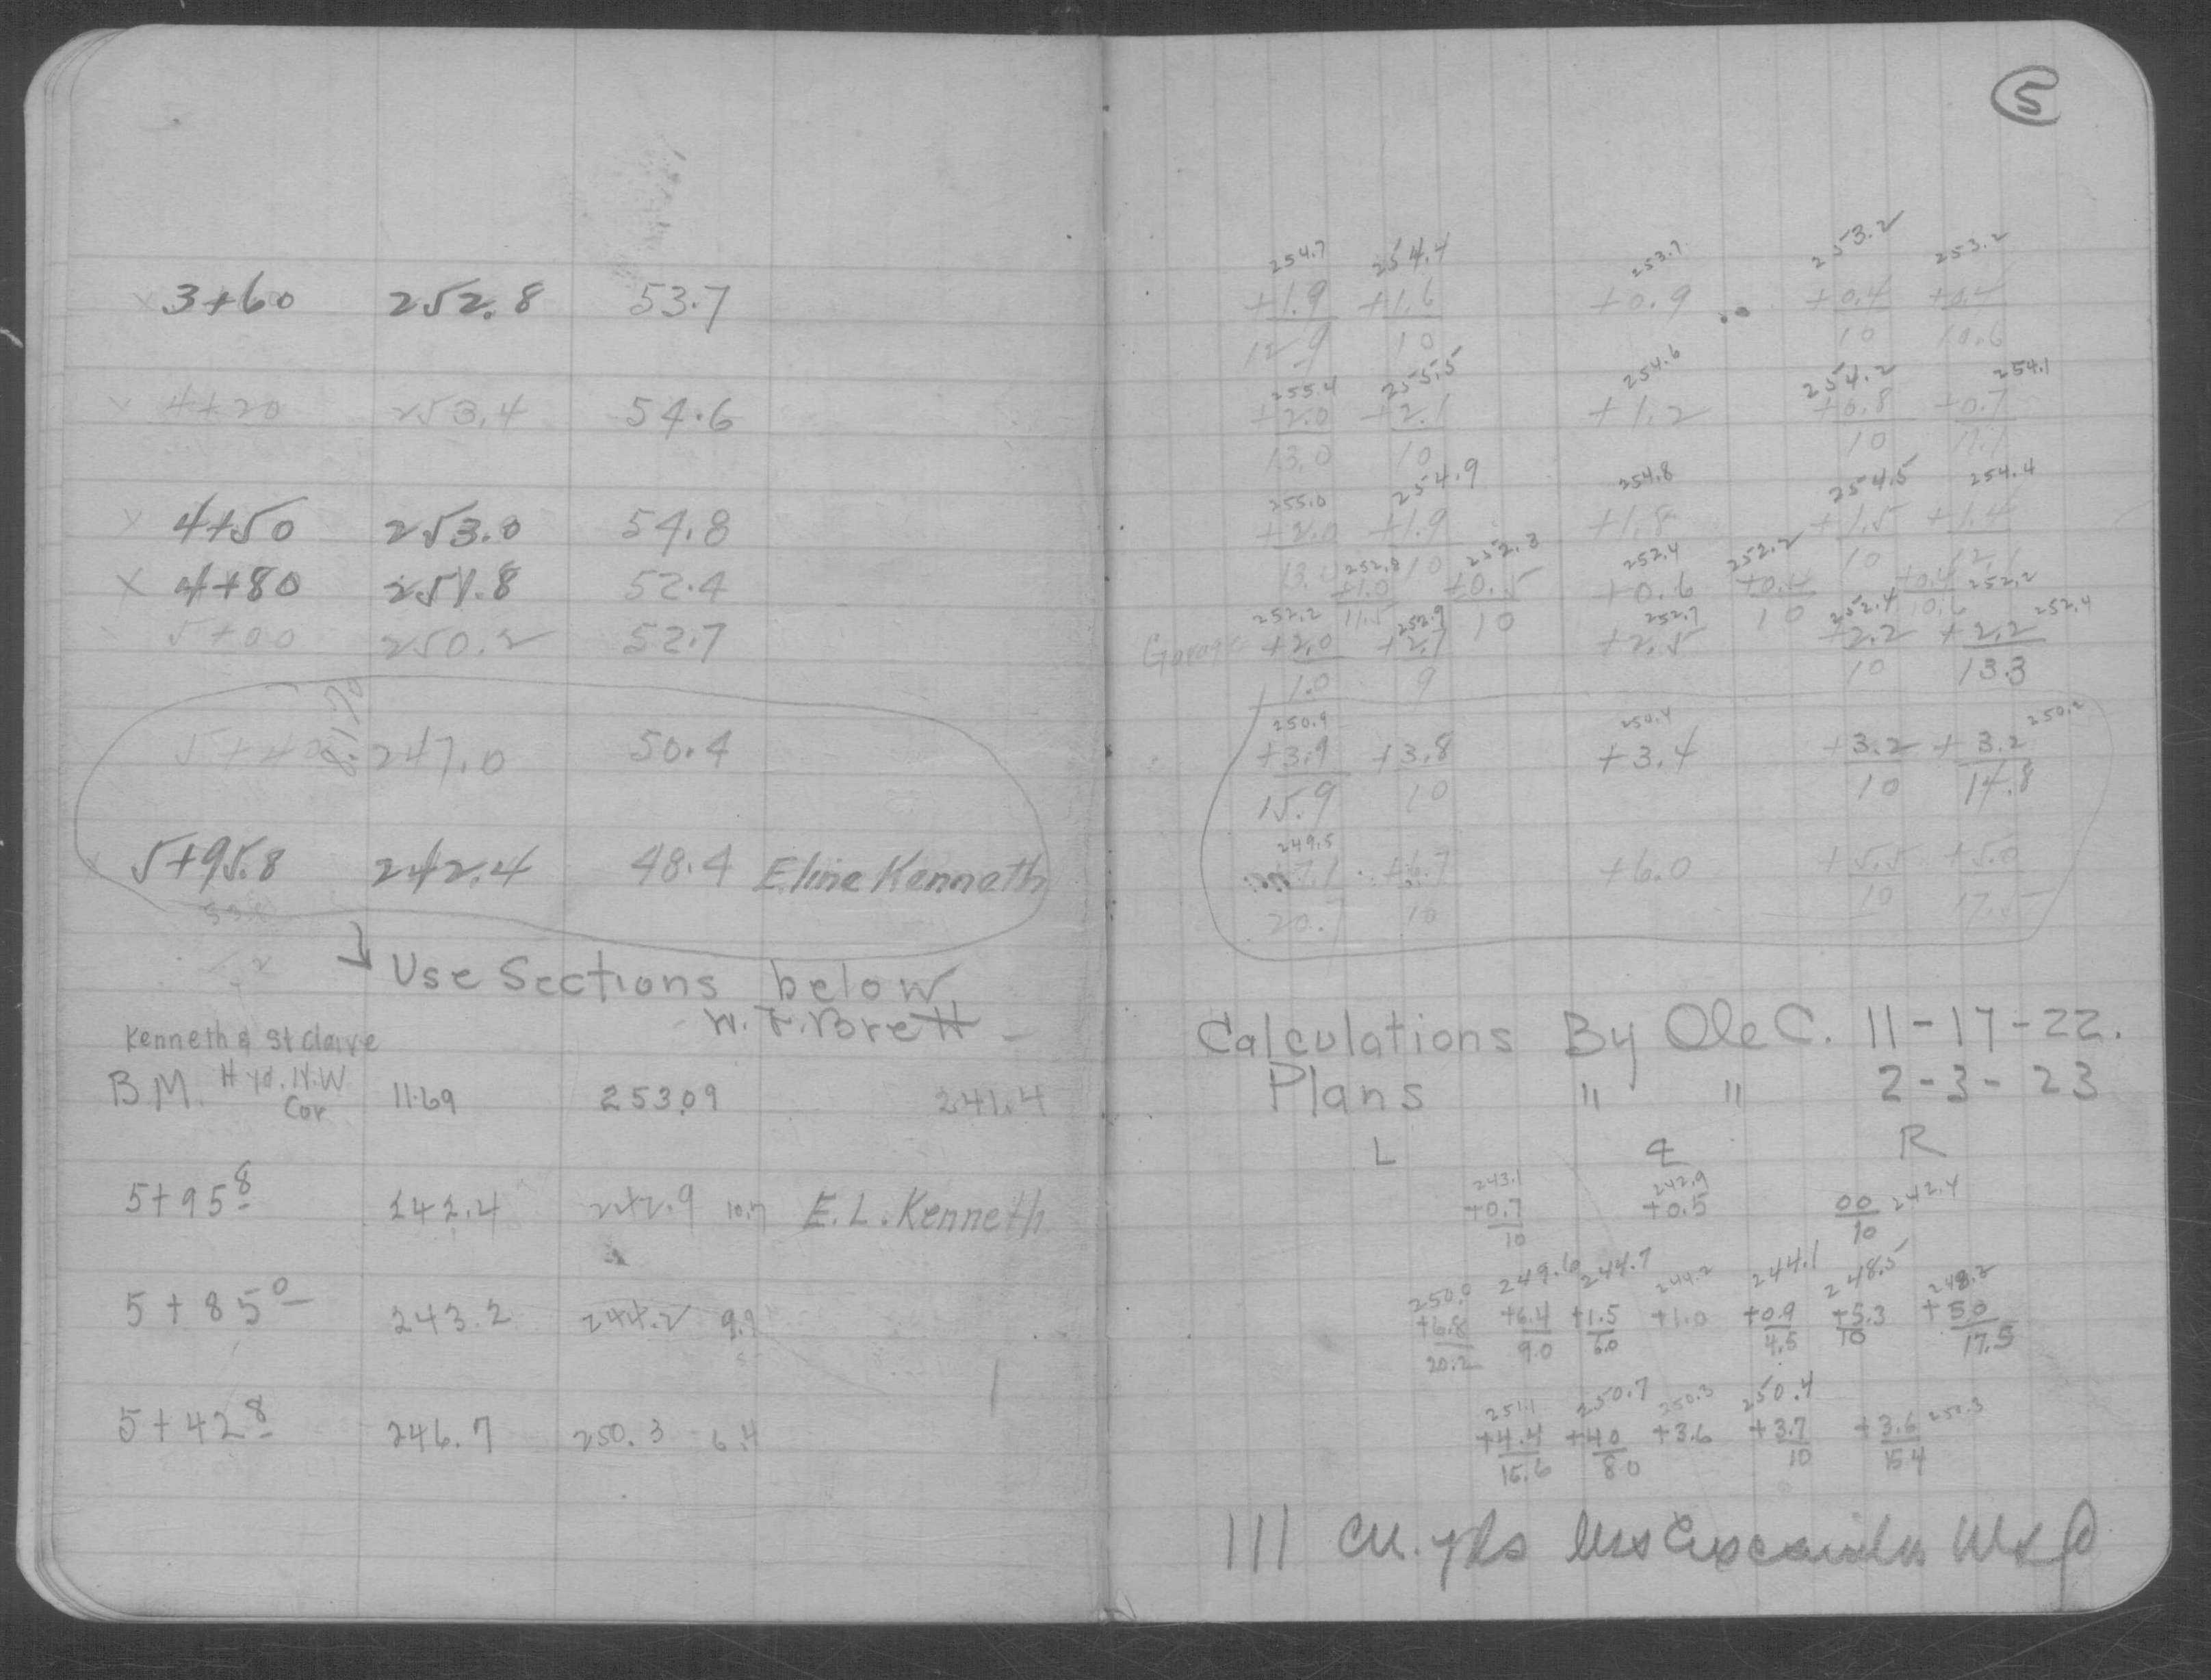 5
3+60 252.8 53.7
4+20 253.4 54.6
4+50 253.0 54.8
x 4+80 251.8 52.4
5+00 250.2 52.7
247.0 50.4
5+95.8 242.4 48.4 E line Kenneth
Use Sections below
W. F. Brett
Kenneth & St Claire
B.M. Hyd. N.W Cor 11.69 253.09 241.4
5+95 8 242.4 242.9 10.2 E. L. Kenneth
5+85 0 243.2 244.2 9.9
5+42 8 246.7 250.3 6.4
254.7 254.4 253.7 253.2 253.2
+1.9 +1.6 +0.9 +0.4 +0.4
12.9 10 10 10.6
255.4 255.5 254.6 254.2 254.1
+2.0 +2.1 +1.2 +0.8 +0.7
13.0 10 10 11.1
255.0 254.9 254.8 254.5 254.4
+2.0 +1.9 +1.8 +1.5 +1.4
13.0 10 10 12.1
252.8 252.3 252.4 252.2 252.2
+1.0 +0.5 +0.6 +0.4 +0.4
11.5 10 10 10.6
252.2 252.9 252.7 252.4 252.4
Garage +2.0 +2.7 +2.5 +2.2 +2.2
9 10 13.3
250.9 250.4 250.2
+3.9 +3.8 +3.4 +3.2 +3.2
15.9 10 10 14.8
249.5
+6.7 +6.0 +5.5 +5.0
20.7 10 10 17.5
Calculations By Ole C. 11-17-22.
Plans " " 2-3-23
L ℄ R
243.1 242.9 242.4
+0.7 +0.5 00
10 10
250.0 249.6 244.7 244.2 244.1 248.5 248.2
+6.8 +6.4 +1.5 +1.0 +0.9 +5.3 +5.0
20.2 9.0 6.0 4.5 10 17.5
251.1 250.7 250.3 250.4 250.3
+4.4 +4.0 +3.6 +3.7 +3.6
16.6 8.0 10 15.4
111 Cu. yds less